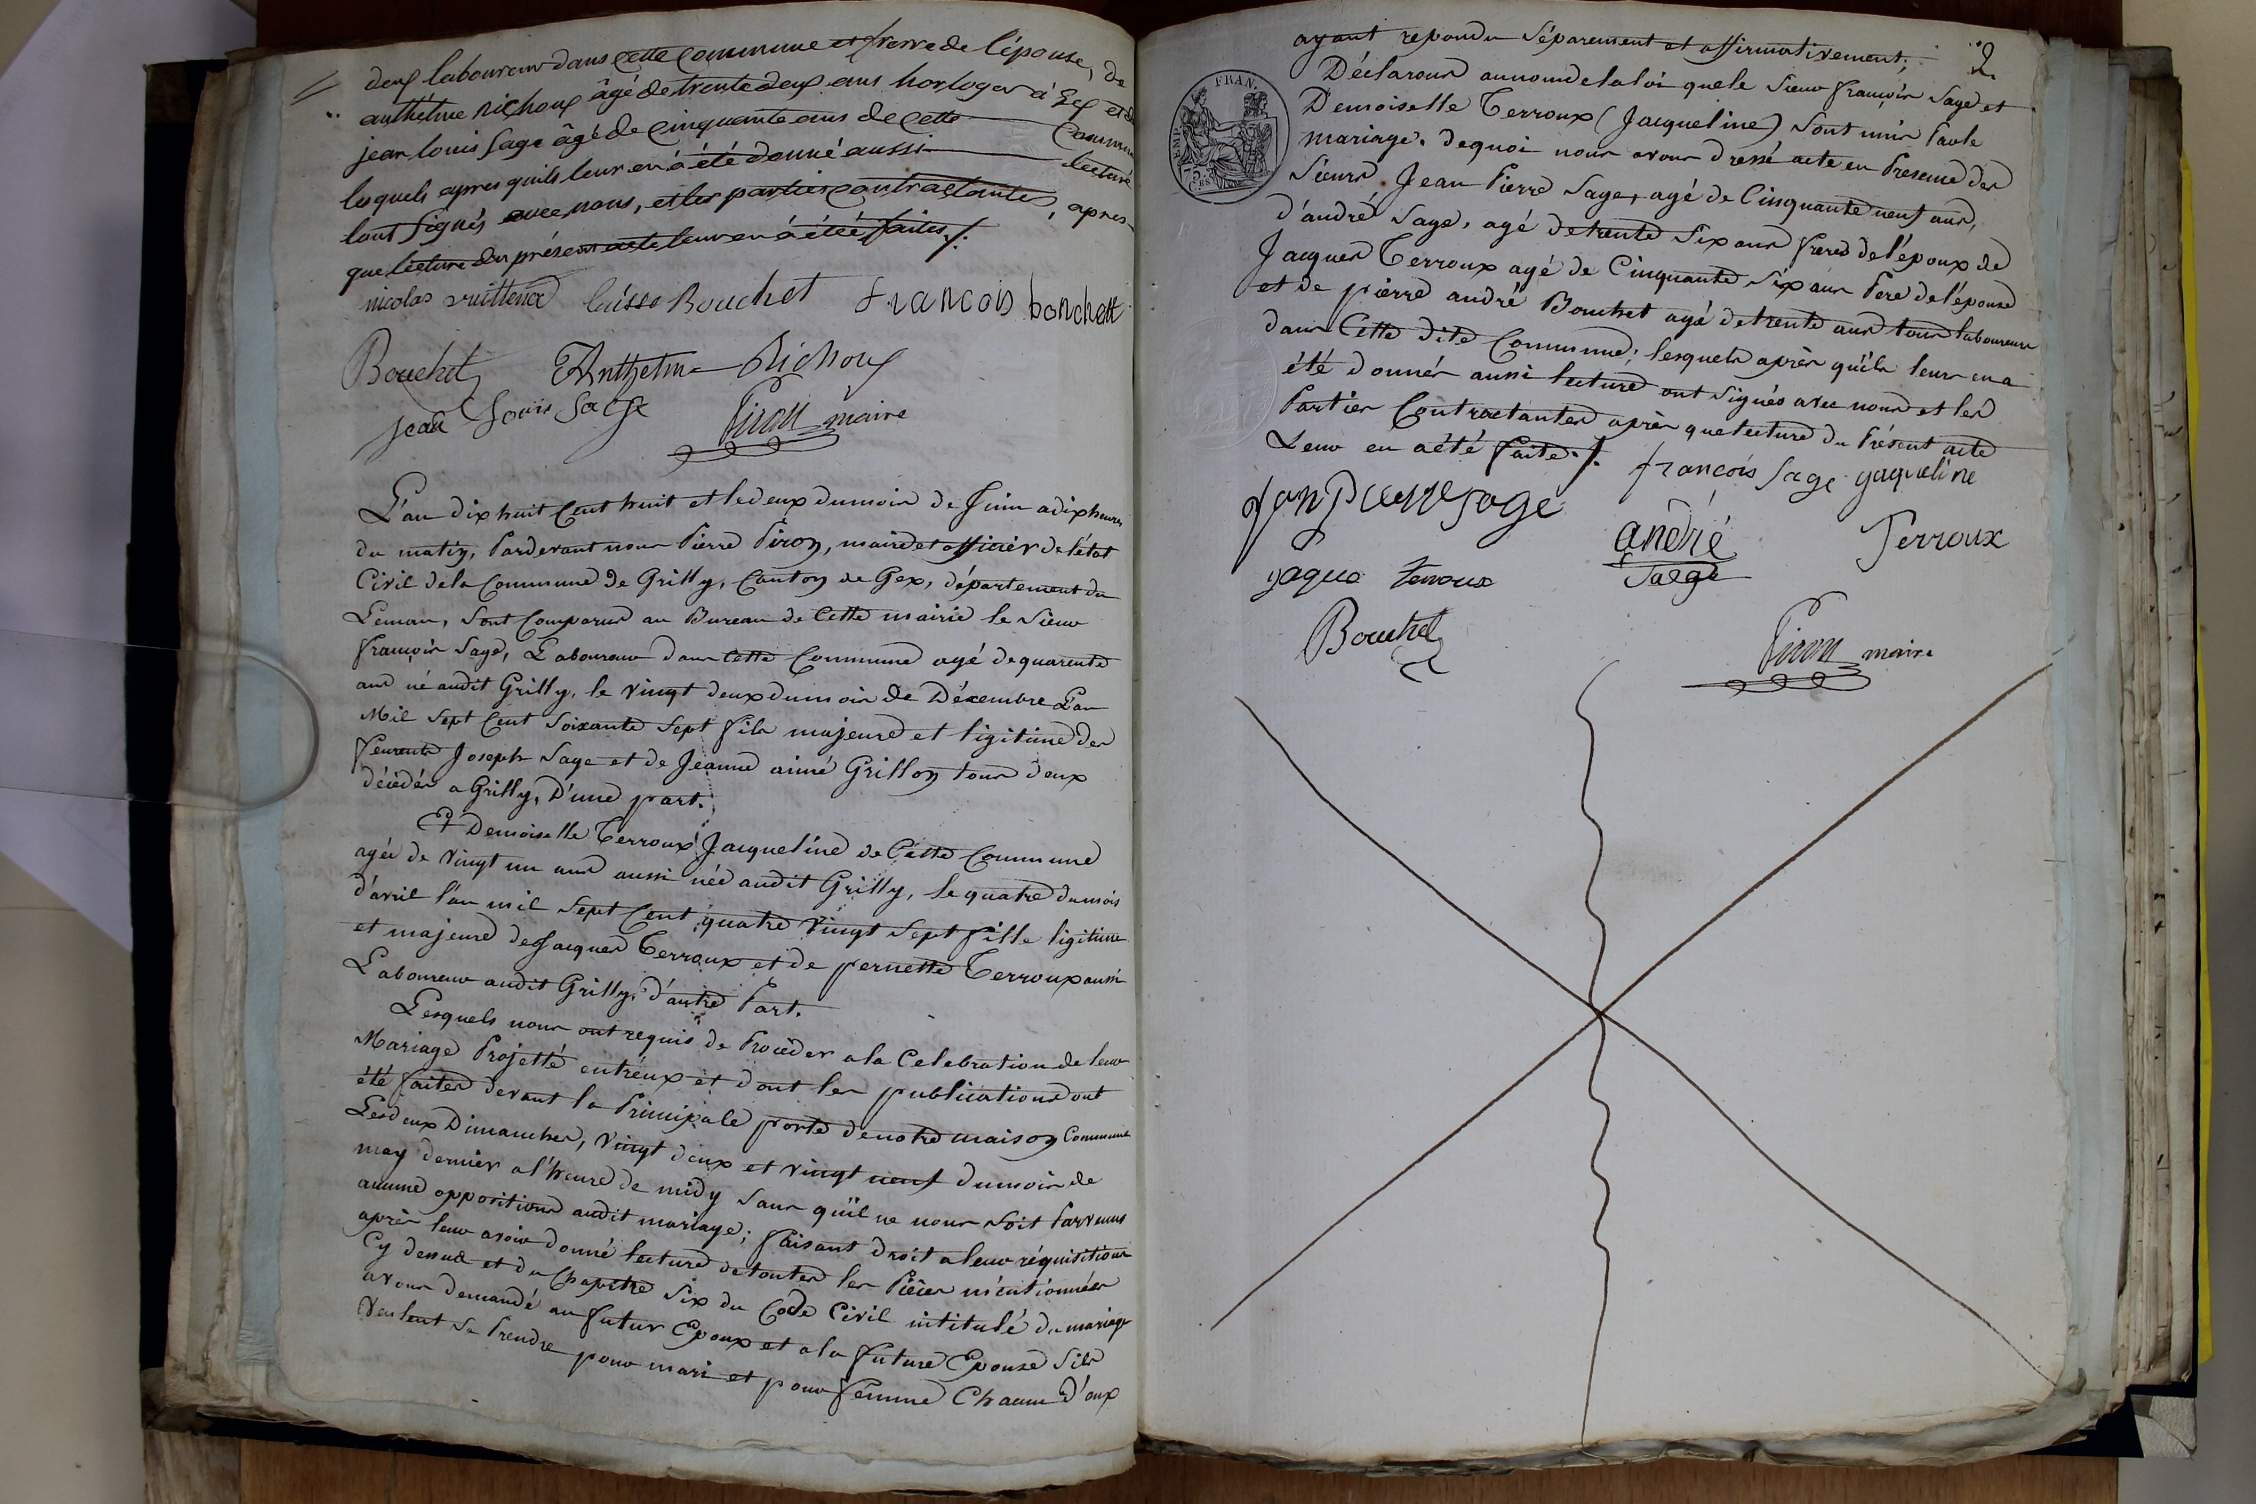 deux laboureur dans cette commune et frerre de l'épouse, de
anthelme richoux âgé de trente deux ans horloger à Gex et de
jean louis sage âgé de cinquante ans de cette Commune
lequels apres quils leur en à été donné aussi lecture
sont signés avec nous, et les parties contractantes, apres
que lecture du présent acte leur en à été faites ./.
nicolas vuillenet louise Bouchet francois bonchett
Bouchet Anthelme Richoux
jean Louis Sage Piron maire
L'an dix huit Cent huit et le deux du mois de Juin a dix heures
du matin, Pardevant nous Pierre Piron, maire et officier de l'état
Civil de la Commune de Grilly, Canton de Gex, département du
Leman, sont Comparus au Bureau de Cette mairie le Sieur
François Sage, Laboureur dans Cette Commune agé de quarente
ans né audit Grilly, le vingt deux du mois de Décembre L'an
Mil Sept Cent Soixante Sept fils majeure et ligitime des
feurent Joseph Sage et de Jeanne aimé Grillon tous deux
décédés a Grilly, D'une part.
Et Demoiselle Terroux Jacqueline de Cette Commune
agée de Vingt un ans aussi née audit Grilly, le quatre du mois
d'avril l'an mil Sept Cent quatre Vingt Sept fille ligitime
et majeure de Jacques Terroux et de pernette Terroux aussi
Laboureur audit Grilly, d'autre Part.
Lesquels nous ont requis de Procéder a la Celebration de leur
Mariage Projetté entréux et dont les publications ont
été faites devant la Principale porte de notre maison Commune
Les deux Dimanches, Vingt deux et vingt neuf du mois de
may dernier a l'heure de midy sans qu'il ne nous soit Parvenus
aucune oppositions audit mariage; faisant droit a leur réquisition
après leur avoir donné lecture de toutes les Pièces méntionnées
Cy dessus et du Chapitre Six du Code Civil intitulé du mariage
avons demandé au futur Epoux et a la future Epouse Sils
Veulent se Prendre pour mari et pour femme Chacun d'eux
2
ayant repondu Séparement et affirmativement;
Déclarons au nom de la loi que le Sieur François Sage et
Demoiselle Terroux (Jacqueline) Sont unis Par le
mariage. de quoi nous avons dressé acte en Presence des
Sieurs Jean Pierre Sage, agé de Cinquante neuf ans,
d'andré Sage, agé de trente Six ans freres de l'époux de
Jacques Terroux agé de Cinquante Six ans Pere de l'épouse
et de pierre andré Bouchet agé de trente ans tous laboureurs
dans Cette dite Commune; lesquels après qu'ils leurs en a
été donnés aussi lecture ont signés avec nous et les
Parties Contractantes après que lecture du Présent acte
Leur en a été faite ./.
francois Sage jaqueline
Jan pierre Sage andré Terroux
jaque terroux Saege
Bouchet Piron maire
FRAN.